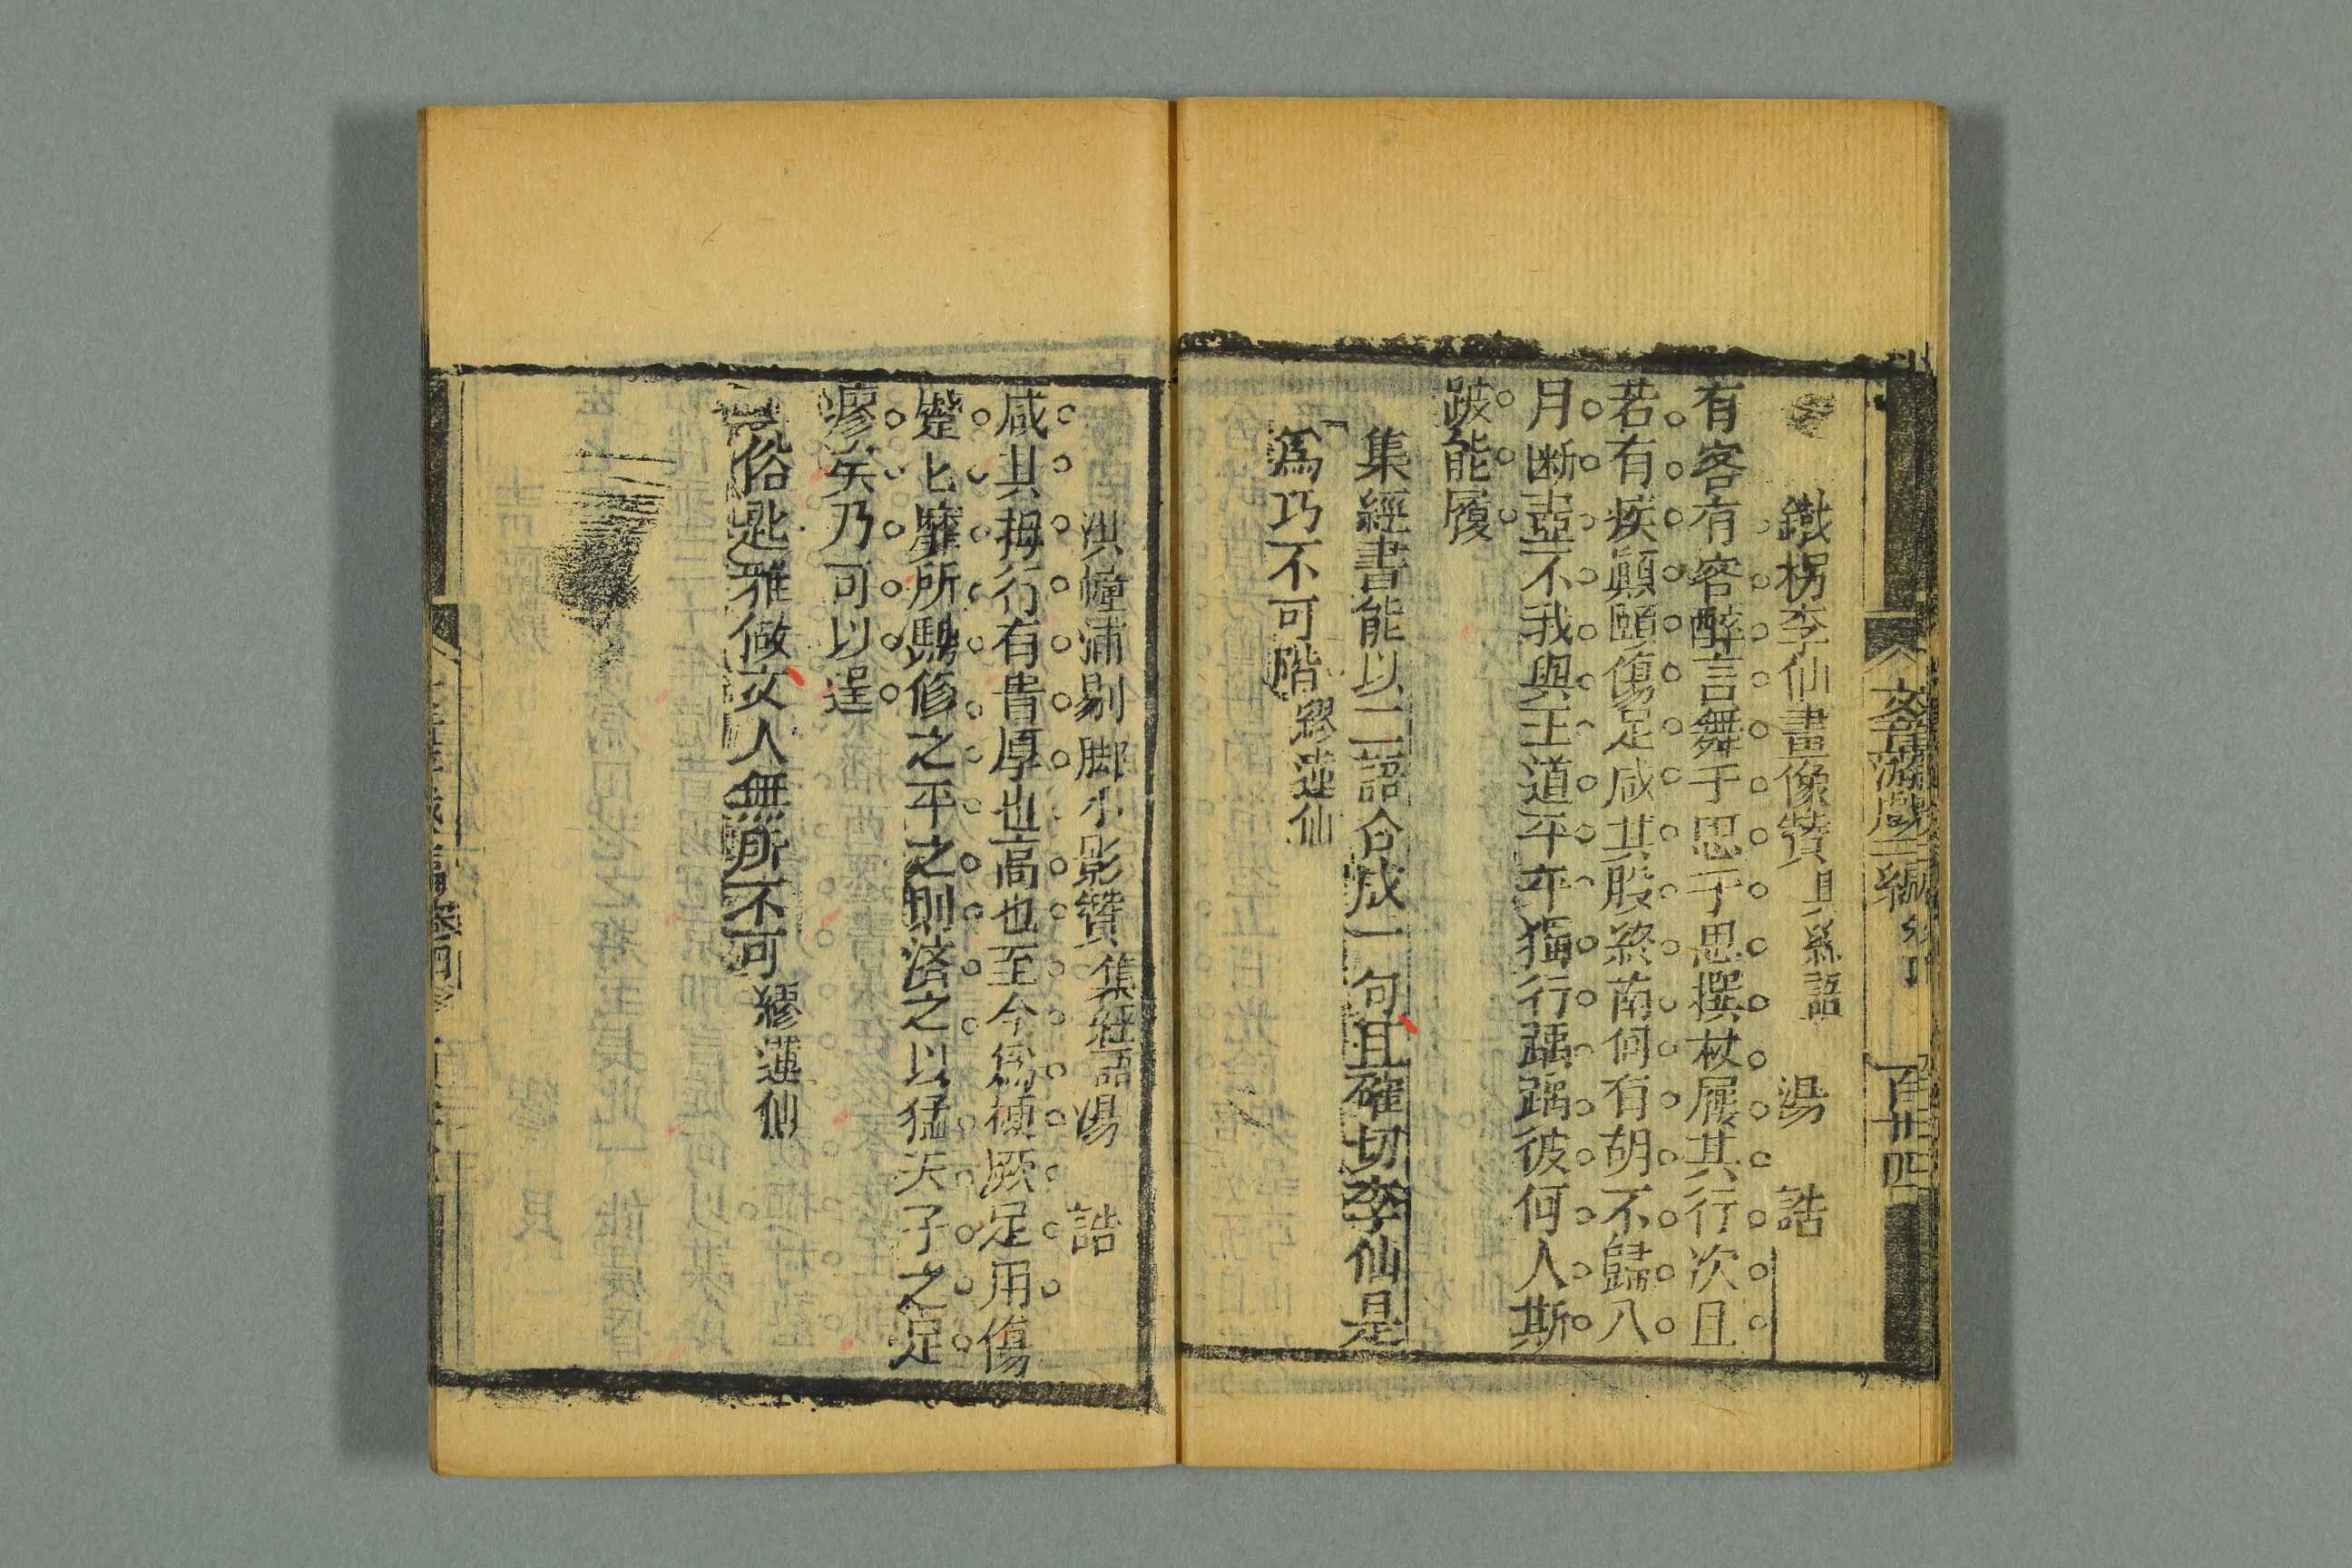 文章游戲三編
百廿四
鐵拐李仙畫像贊 集經語 湯 誥
有客有客醉言舞于思于思撰杖屨其行次且
若有疾顛頤傷足咸其股終南何有胡不歸八
月斷壺不我與王道平平獨行踽踽彼何人斯
跛能履
集經書能以二語合成一句且確切李仙是
爲巧不可階 繆蓮仙
洪幢浦剔脚小影贊 集經語 湯 誥
咸其拇行有眚厚也高也至今爲梗厥足用傷
躄匕 所 修之平之則濟之以猛夫子之足
瘳矣乃可以逞
俗匙雅做文人無所不可 繆蓮仙